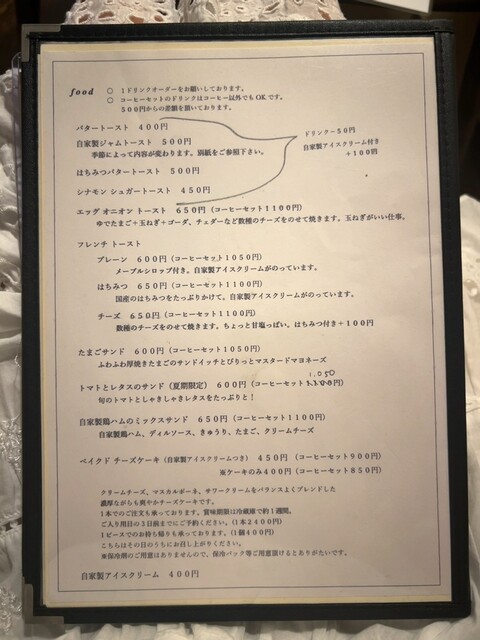 food ○ 1ドリンクオーダーをお願いしております。
○ コーヒーセットのドリンクはコーヒー以外でもOKです。
500円からの差額を頂いております。
バタートースト 400円
自家製ジャムトースト 500円
季節によって内容が変わります。別紙をご参照下さい。
はちみつバタートースト 500円
シナモン シュガートースト 450円
ドリンク-50円
自家製アイスクリーム付き
+100円
エッグ オニオン トースト 650円(コーヒーセット1100円)
ゆでたまご+玉ねぎ+ゴーダ、チェダーなど数種のチーズをのせて焼きます。玉ねぎがいい仕事。
フレンチ トースト
プレーン 600円(コーヒーセット1050円)
メープルシロップ付き。自家製アイスクリームがのっています。
はちみつ 650円(コーヒーセット1100円)
国産のはちみつをたっぷりかけて。自家製アイスクリームがのっています。
チーズ 650円(コーヒーセット1100円)
数種のチーズをのせて焼きます。ちょっと甘塩っぱい。はちみつ付き+100円
たまごサンド 600円(コーヒーセット1050円)
ふわふわ厚焼きたまごのサンドイッチとぴりっとマスタードマヨネーズ
1.050
トマトとレタスのサンド(夏期限定) 600円(コーヒーセット1100円)
旬のトマトとしゃきしゃきレタスをたっぷりと!
自家製鶏ハムのミックスサンド 650円(コーヒーセット1100円)
自家製鶏ハム、ディルソース、きゅうり、たまご、クリームチーズ
ベイクド チーズケーキ(自家製アイスクリームつき) 450円 (コーヒーセット900円)
※ケーキのみ400円(コーヒーセット850円)
クリームチーズ、マスカルポーネ、サワークリームをバランスよくブレンドした
濃厚ながらも爽やかチーズケーキです。
1本でのご注文も承っております。賞味期限は冷蔵庫で約1週間。
ご入り用日の3日前までにご予約ください。(1本2400円)
1ピースでのお持ち帰りも承っております。(1個400円)
こちらはその日のうちにお召し上がりください。
※保冷剤のご用意はありませんので、保冷バック等ご用意頂けるとありがたいです。
自家製アイスクリーム 400円